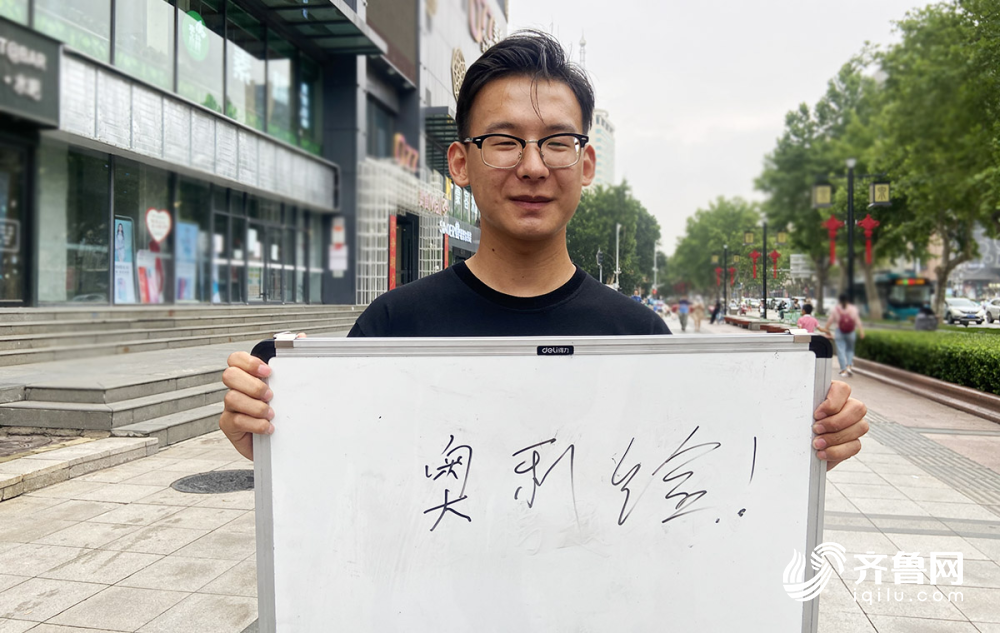 deli得力
奥利给!
齐鲁网
iqilu.com